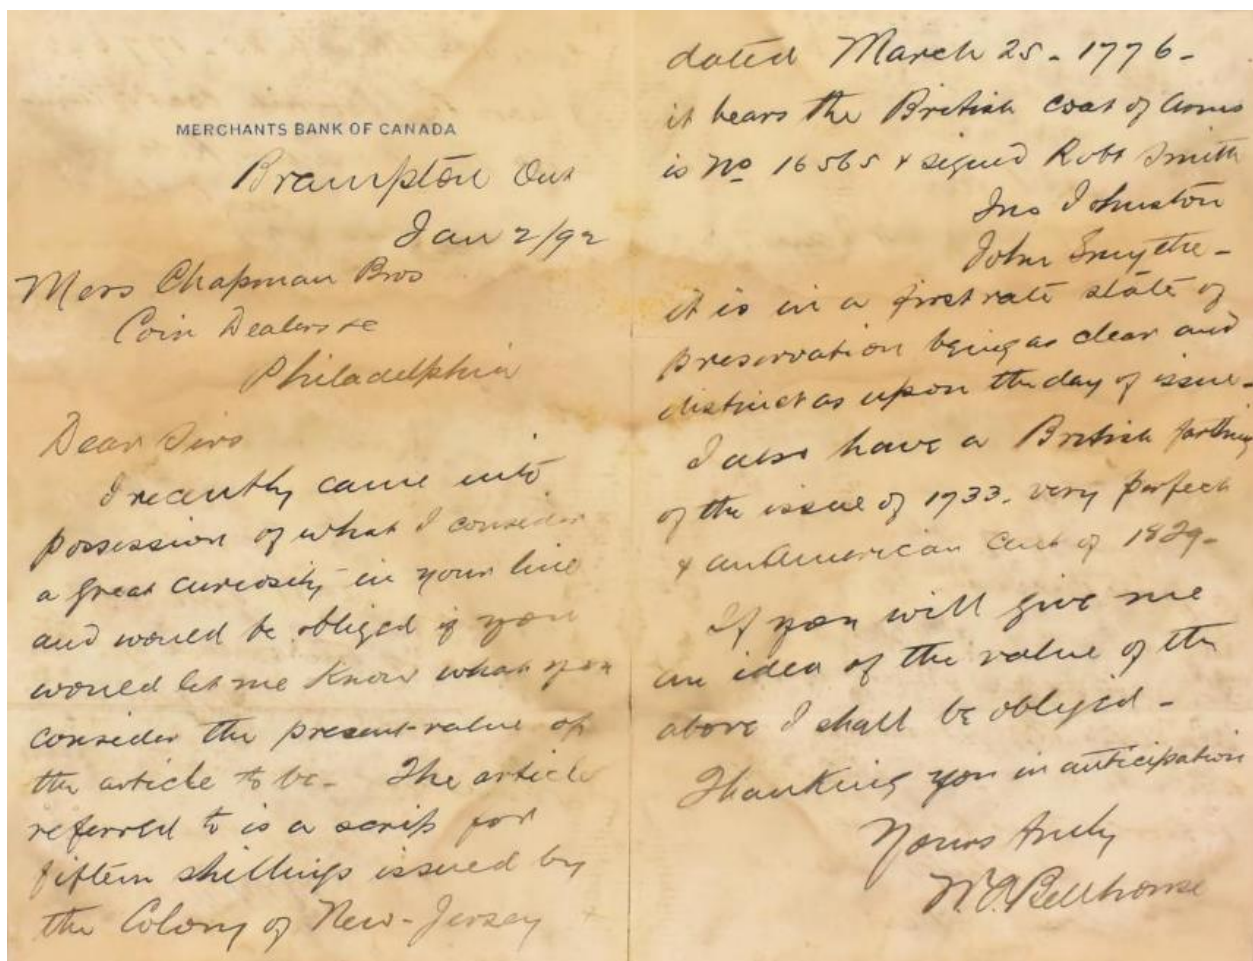 MERCHANTS BANK OF CANADA
Brampton Ont
Jan 2/92
Mers Chapman Bros
Coin Dealers &c
Philadelphia
Dear Sirs
I recently came into
possession of what I consider
a great curiosity in your line
and would be obliged if you
would let me know what you
consider the present value of
the article to be - The article
referred to is a scrip for
fifteen shillings issued by
the Colony of New-Jersey &
dated March 25 - 1776 -
it bears the British coat of arms
is No 16565 & signed Robt Smith
Jno Johnston
John Smythe -
it is in a first rate state of
preservation being as clear and
distinct as upon the day of issue -
I also have a British farthing
of the issue of 1733. very perfect
& an American Cent of 1829 -
If you will give me
an idea of the value of the
above I shall be obliged -
Thanking you in anticipation
Yours truly
W. Bellhouse